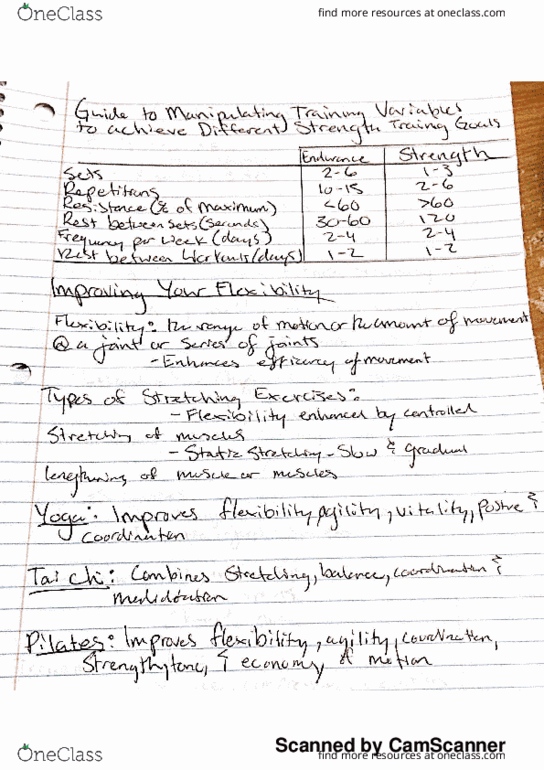 OneClass
find more resources at oneclass.com
Guide to Manipulating Training Variables
to achieve Different Strength Traing Goals
Endurance Strength
Sets 2-6 1-3
Repetitions 10-15 2-6
Resistance (% of maximum) <60 >60
Rest between sets (seconds) 30-60 120
Frequency per week (days) 2-4 2-4
Rest between Workouts (days) 1-2 1-2
Improving Your Flexibility
Flexibility: the range of motion or the amount of movement
@ a joint or series of joints
- Enhances efficiency of movement
Types of Stretching Exercises:
- Flexibility enhanced by controlled
Stretching of muscles
- Static Stretching - Slow & gradual
lengthening of muscle or muscles
Yoga: Improves flexibility, agility, vitality, posture &
coordination
Tai chi: Combines Stretching, balance, coordination &
meditation
Pilates: Improves flexibility, agility, coordination,
Strength, tone, & economy of motion
Scanned by CamScanner
OneClass
find more resources at oneclass.com